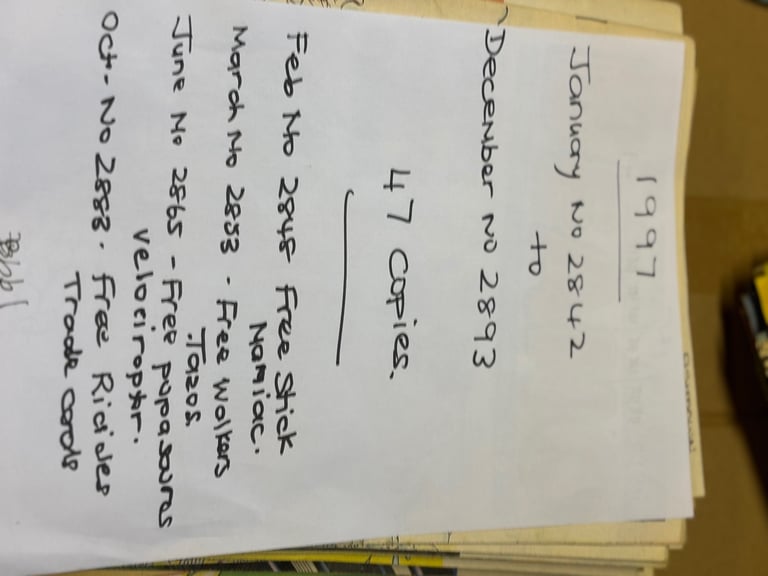 1997
January No 2842
to
December No 2893
47 Copies.
Feb No 2848 Free Stick
Maniac.
March No 2853 - Free Walkers
Tazos
June No 2865 - Free pupasaurus
velosiroptor.
Oct - No 2883 - Free Riddles
Trade cards